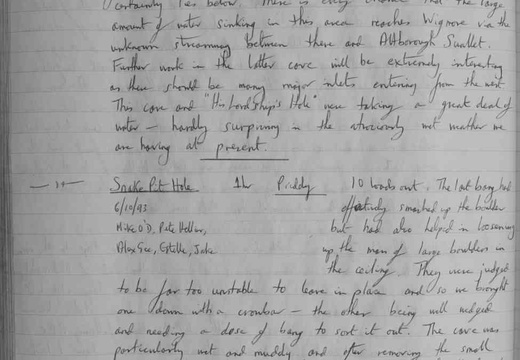 certainty lies below. There is every chance that the large
amount of water sinking in this area reaches Wigmore via the
unknown streamway between there and Attborough Swallet.
Further work in the latter cave will be extremely interesting
as there should be many major inlets entering from the west.
This cave and "His Lordship's Hole" were taking a great deal of
water – hardly surprising in the atrociously wet weather we
are having at present.
Snake Pit Hole 1hr Priddy 10 loads out. The last bang had
6/10/93 effectively smashed up the boulder
Mike O'D, Pete Hellier, but had also helped in loosening
Alex Gee, Estelle, Jake up the mass of large boulders in
the ceiling. They were judged
to be far too unstable to leave in place and so we brought
one down with a crowbar – the other being well wedged
and needing a dose of bang to sort it out. The cave was
particularly wet and muddy and after removing the small